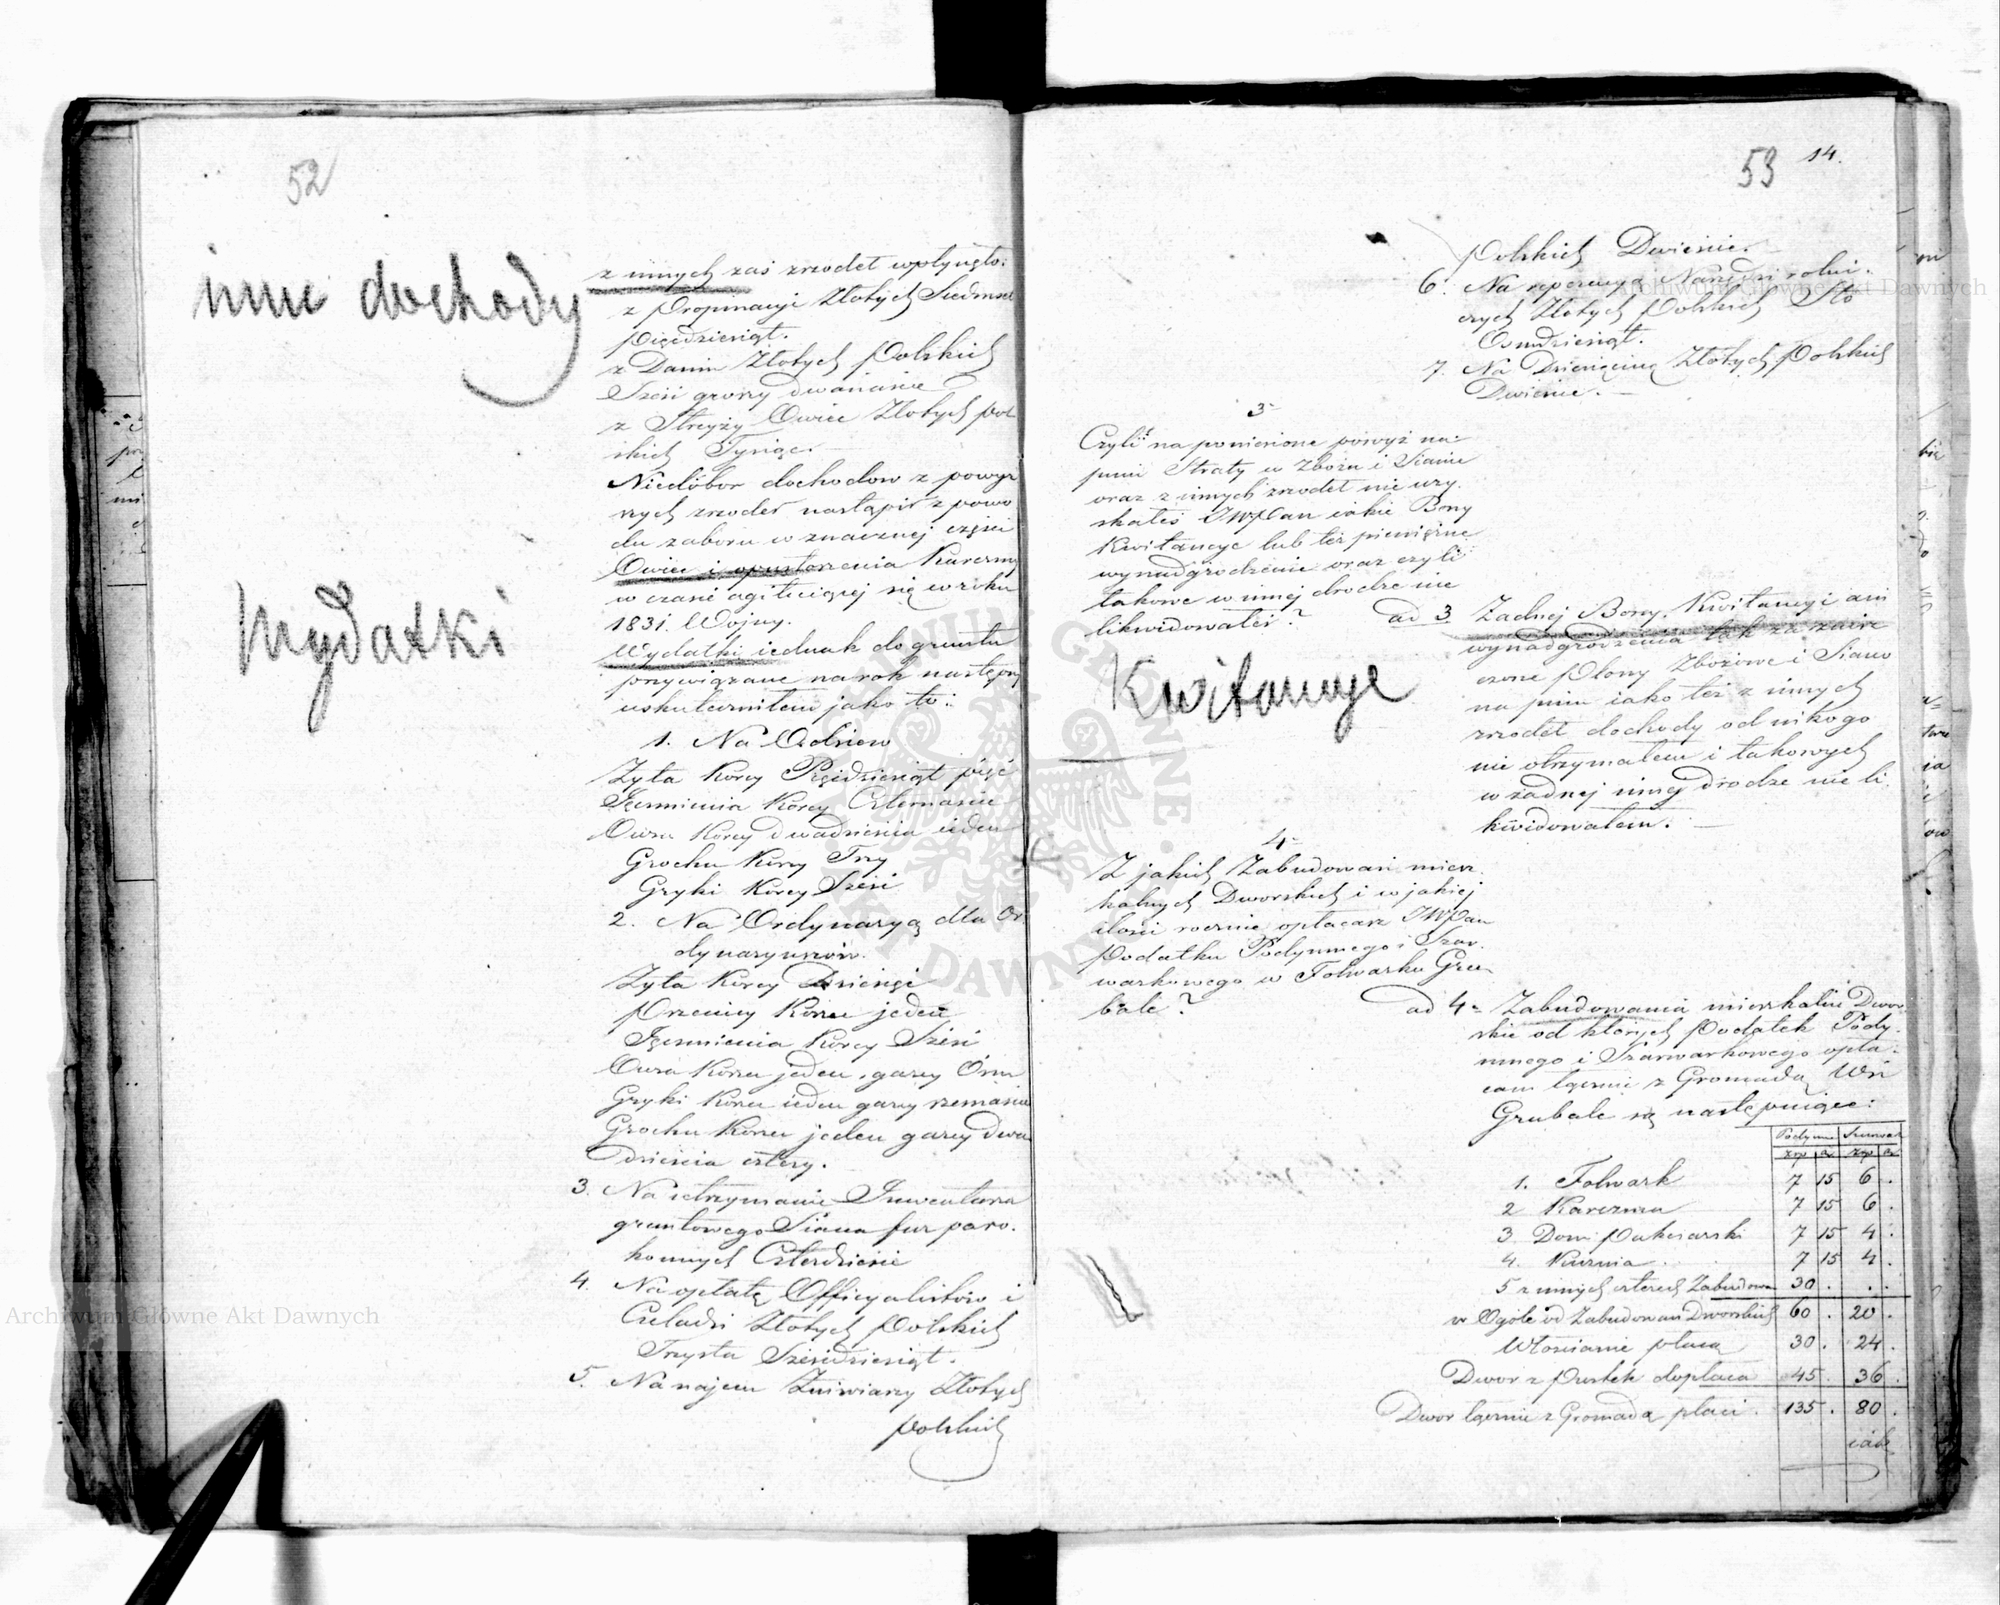 52
inne dochody
z innych zaś zrzodeł wpłynęło:
z Propinacyi Złotych Siedmset
pięćdziesiąt.
z Danin Złotych polskich
Sześć groszy dwanaście
z Strzyży Owiec Złotych pol
skich Tysiąc.
Niedobor dochodow z powyż
szych zrzodeł nastąpił z powo
du zaboru w znacznej części
Owiec i opustoszenia Karczmy
w czasie agitującej się w roku
1831. Wojny.
Wydatki
Wydatki iednak do gruntu
przywiązane na rok następny
uskuteczniłem jako to:
1. Na Odsiew
Zyta Korcy Pięćdziesiąt pięć
Jęczmienia Korcy Czternaście
Owsa Korcy dwadzieścia ieden
Grochu Korcy Trzy
Gryki Korcy Sześć
2. Na Ordynaryą dla Or
dynaryuszów.
Zyta Korcy Dziesięć
Pszenicy Korzec jeden
Jęczmienia Korcy Sześć
Owsa Korzec jeden, garcy Ośm
Gryki Korzec ieden garcy szesnaście
Grochu Korzec jeden garcy dwa
dzieścia cztery.
3. Na utrzymanie Inwentarza
gruntowego Siana fur paro.
konnych Czterdzieście
4. Na opłatę Officyalistów i
Czeladzi Złotych polskich
Trzysta Sześćdziesiąt.
5. Na najem Żniwiarzy Złotych
polskich
53 14.
polskich Dwieście.
6. Na reperacyą Narzędzi rolni.
czych Złotych polskich Sto
Osmdziesiąt.
7. Na Dziesięcinę Złotych polskich
Dwieście.
3
Czyliś na poniesione powyż na
pniu Straty w Zbożu i Sianie
oraz z innych zrzodeł nie uzy.
skałeś JWPan iakie Bony
Kwitancye lub też pieniężne
wynadgrodzenie oraz czyli
takowe w innej drodze nie
likwidowałeś?
ad 3. Zadnej Bony, Kwitancyi ani
wynadgrodzenia tak za znisz
czone plony Zbożowe i Siano
na pniu iako też z innych
zrzodeł dochody od nikogo
nie otrzymałem i takowych
w zadnej innej drodze nie li
kwidowałem.
Kwitancye
4
Z jakich Zabudowań miesz
kalnych Dworskich i w jakiej
ilości rocznie opłacasz JWPan
Podatku Podymnego i Szar.
warkowego w Folwarku Gru
bale?
ad 4 Zabudowania mieszkalne Dwor
skie od których Podatek Pody.
mnego i Szarwarkowego opła.
cam łącznie z Gromadą Wsi
Grubale są następuiące:
Podymne Szarwark
złp gr złp gr
1. Folwark 7 15 6 .
2 Karczma 7 15 6 .
3. Dom pakciarski 7 15 4 .
4. Kuznia 7 15 4 .
5 z innych czterech Zabudowań 30 . . .
w Ogóle od Zabudowań Dworskich 60 . 20 .
Włościanie płacą 30 . 24 .
Dwor z Pustek dopłaca 45 . 36 .
Dwor łącznie z Gromadą płaci 135 . 80 .
iak
Archiwum Główne Akt Dawnych
Archiwum Główne Akt Dawnych
ARCHIWUM GŁÓWNE AKT DAWNYCH